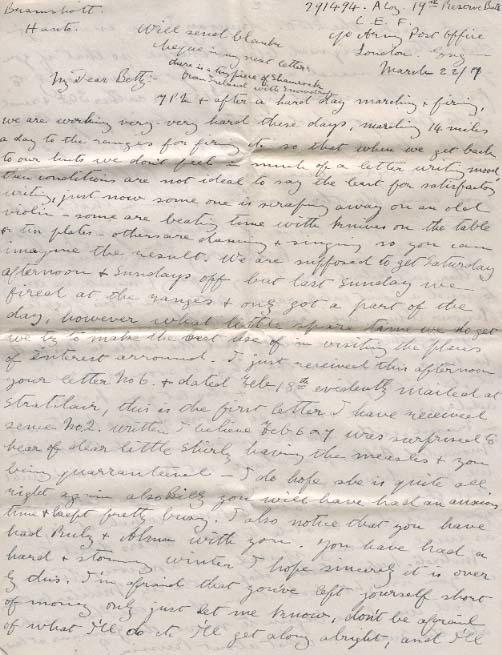 Bramshott
Hants.
291494. A Coy 19th Reserve Batt
C. E. F.
c/o Army Post Office
London. Eng
March 22/17
Will send blank
cheque in my next letter.
there is a tiny piece of Shamrock
from Ireland with
My Dear Betty:-
7 P.M. & after a hard day marching & firing,
we are working very-very hard these days, marching 14 miles
a day to the ranges for firing etc. so that when we get back
to our huts we don't feel in much of a letter writing mood,
then conditions are not ideal to say the least for satisfactory
writing, just now some one is scraping away on an old
violin - some are beating time with knives on the table
& tin plates - others are dancing & singing so you can
imagine the result. We are supposed to get Saturday
afternoon & Sundays off but last Sunday we
fired at the ranges & only got a part of the
day, however what little spare time we do get
we try to make the best use of in visiting the places
of interest arround. I just received this afternoon
your letter No 6. & dated Feb 18th evidently mailed at
Strathclair, this is the first letter I have received
sence No.2. written I believe Feb 6 or 7 was surprised to
hear of dear little Shirly having the measles & you
being quarrantened - I do hope she is quite all
right again also Billy you will have had an anxious
time & kept pretty busy. I also notice that you have
had Ruby & Alma with you. You have had a
hard & stormy winter I hope sincerely it is over
by this. I'm afraid that you've left yourself short
of money only just let me know, don't be afraid
of what I'll do etc I'll get along alright, and I'll